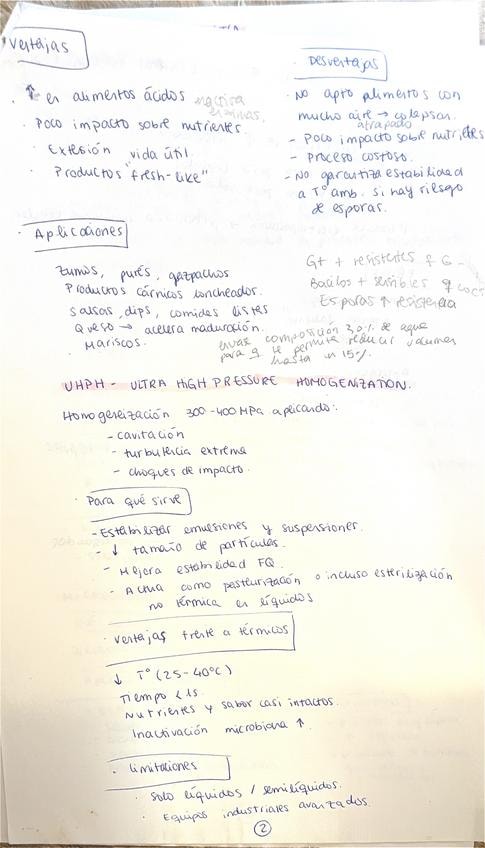 Ventajas
· ↑ en alimentos ácidos inactiva enzimas.
· Poco impacto sobre nutrientes.
· Extensión vida útil.
· Productos "fresh-like"
Desventajas
- No apto alimentos con
mucho aire → colapsan.
atrapado
- Poco impacto sobre nutrientes
- Proceso costoso.
- No garantiza estabilidad
a Tº amb. si hay riesgo
de esporas.
· Aplicaciones
Zumos, purés, gazpachos
Productos cárnicos loncheados.
Salsas, dips, comidas listas
Queso → acelera maduración.
· Mariscos.
G+ + resistentes q G-
Bacilos + sensibles q cocos
Esporas ↑ resistencia
envas composición 30% de agua
para q te permita reducir volumen
hasta un 15%.
UHPH - ULTRA HIGH PRESSURE HOMOGENIZATION.
Homogeneización 300-400 MPa aplicando:
- cavitación
- turbulencia extrema
- choques de impacto.
· Para qué sirve
- Estabilizar emulsiones y suspensiones.
- ↓ tamaño de partículas.
- Mejora estabilidad FQ.
- Actúa como pasteurización o incluso esterilización
no térmica en líquidos
· Ventajas frente a térmicos
↓ Tº (25-40ºC)
Tiempo < 1s.
Nutrientes y sabor casi intactos.
Inactivación microbiana ↑.
· Limitaciones
· Solo líquidos / semilíquidos.
· Equipos industriales avanzados
2